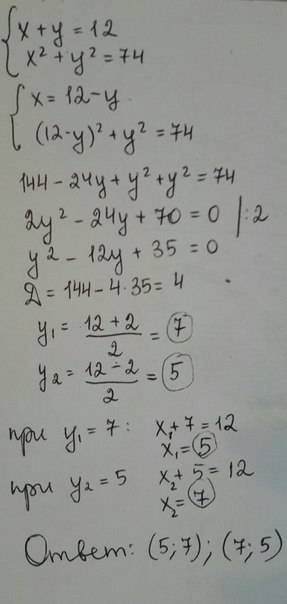 x + y = 12
x² + y² = 74
x = 12 - y
(12-y)² + y² = 74
144 - 24y + y² + y² = 74
2y² - 24y + 70 = 0 |:2
y² - 12y + 35 = 0
Д = 144 - 4·35 = 4
y₁ = (12+2)/2 = 7
y₂ = (12-2)/2 = 5
при y₁ = 7: x₁ + 7 = 12
x₁ = 5
при y₂ = 5 x₂ + 5 = 12
x₂ = 7
Ответ: (5; 7); (7; 5)